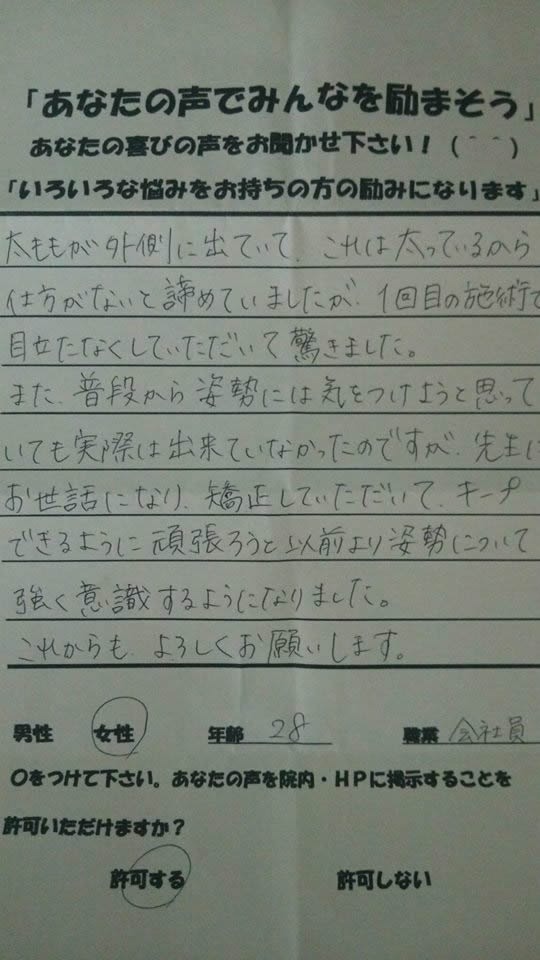 「あなたの声でみんなを励まそう」
あなたの喜びの声をお聞かせ下さい！（＾＾）
「いろいろな悩みをお持ちの方の励みになります」
太ももが外側に出ていて、これは太っているから
仕方がないと諦めていましたが、1回目の施術で
目立たなくしていただいて驚きました。
また、普段から姿勢には気をつけようと思って
いても実際は出来ていなかったのですが、先生に
お世話になり、矯正していただいて、キープ
できるように頑張ろうと以前より姿勢について
強く意識するようになりました。
これからも、よろしくお願いします。
男性 女性 年齢 28 職業 会社員
○をつけて下さい。あなたの声を院内・HPに掲示することを
許可いただけますか？
許可する 許可しない